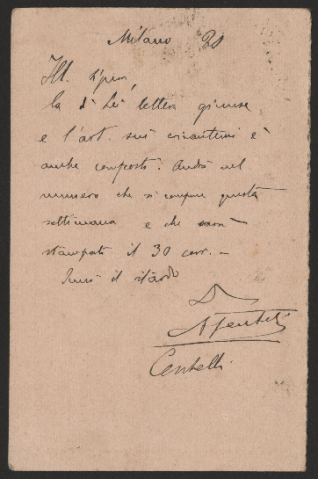 Milano 20
Ill. Signor
la di Lei lettera giunse
e l'art. sui crisantemi è
anche composto. Andrà nel
numero che si compone questa
settimana e che sarà
stampato il 30 corr. —
Scusi il ritardo